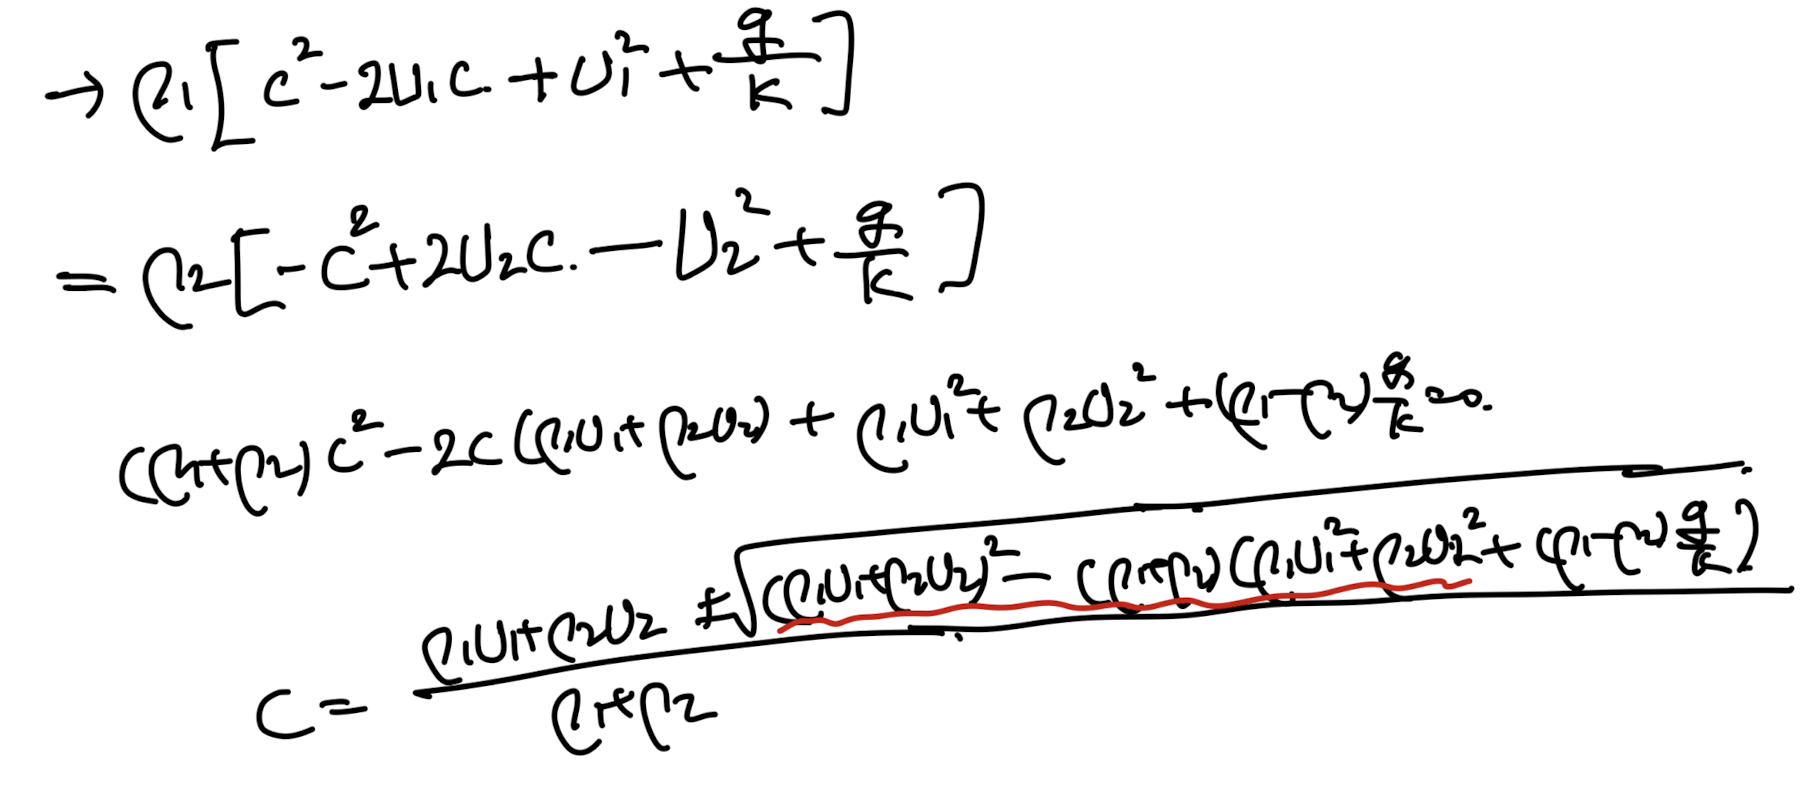 → ρ₁[c² - 2U₁c + U₁² + g/k]
= ρ₂[-c² + 2U₂c. - U₂² + g/k]
(ρ₁+ρ₂)c² - 2c(ρ₁U₁+ρ₂U₂) + ρ₁U₁² + ρ₂U₂² + (ρ₁-ρ₂)g/k = 0.
c = (ρ₁U₁+ρ₂U₂ ± √((ρ₁U₁+ρ₂U₂)² - (ρ₁+ρ₂)(ρ₁U₁²+ρ₂U₂² + (ρ₁-ρ₂)g/k)))/(ρ₁+ρ₂)